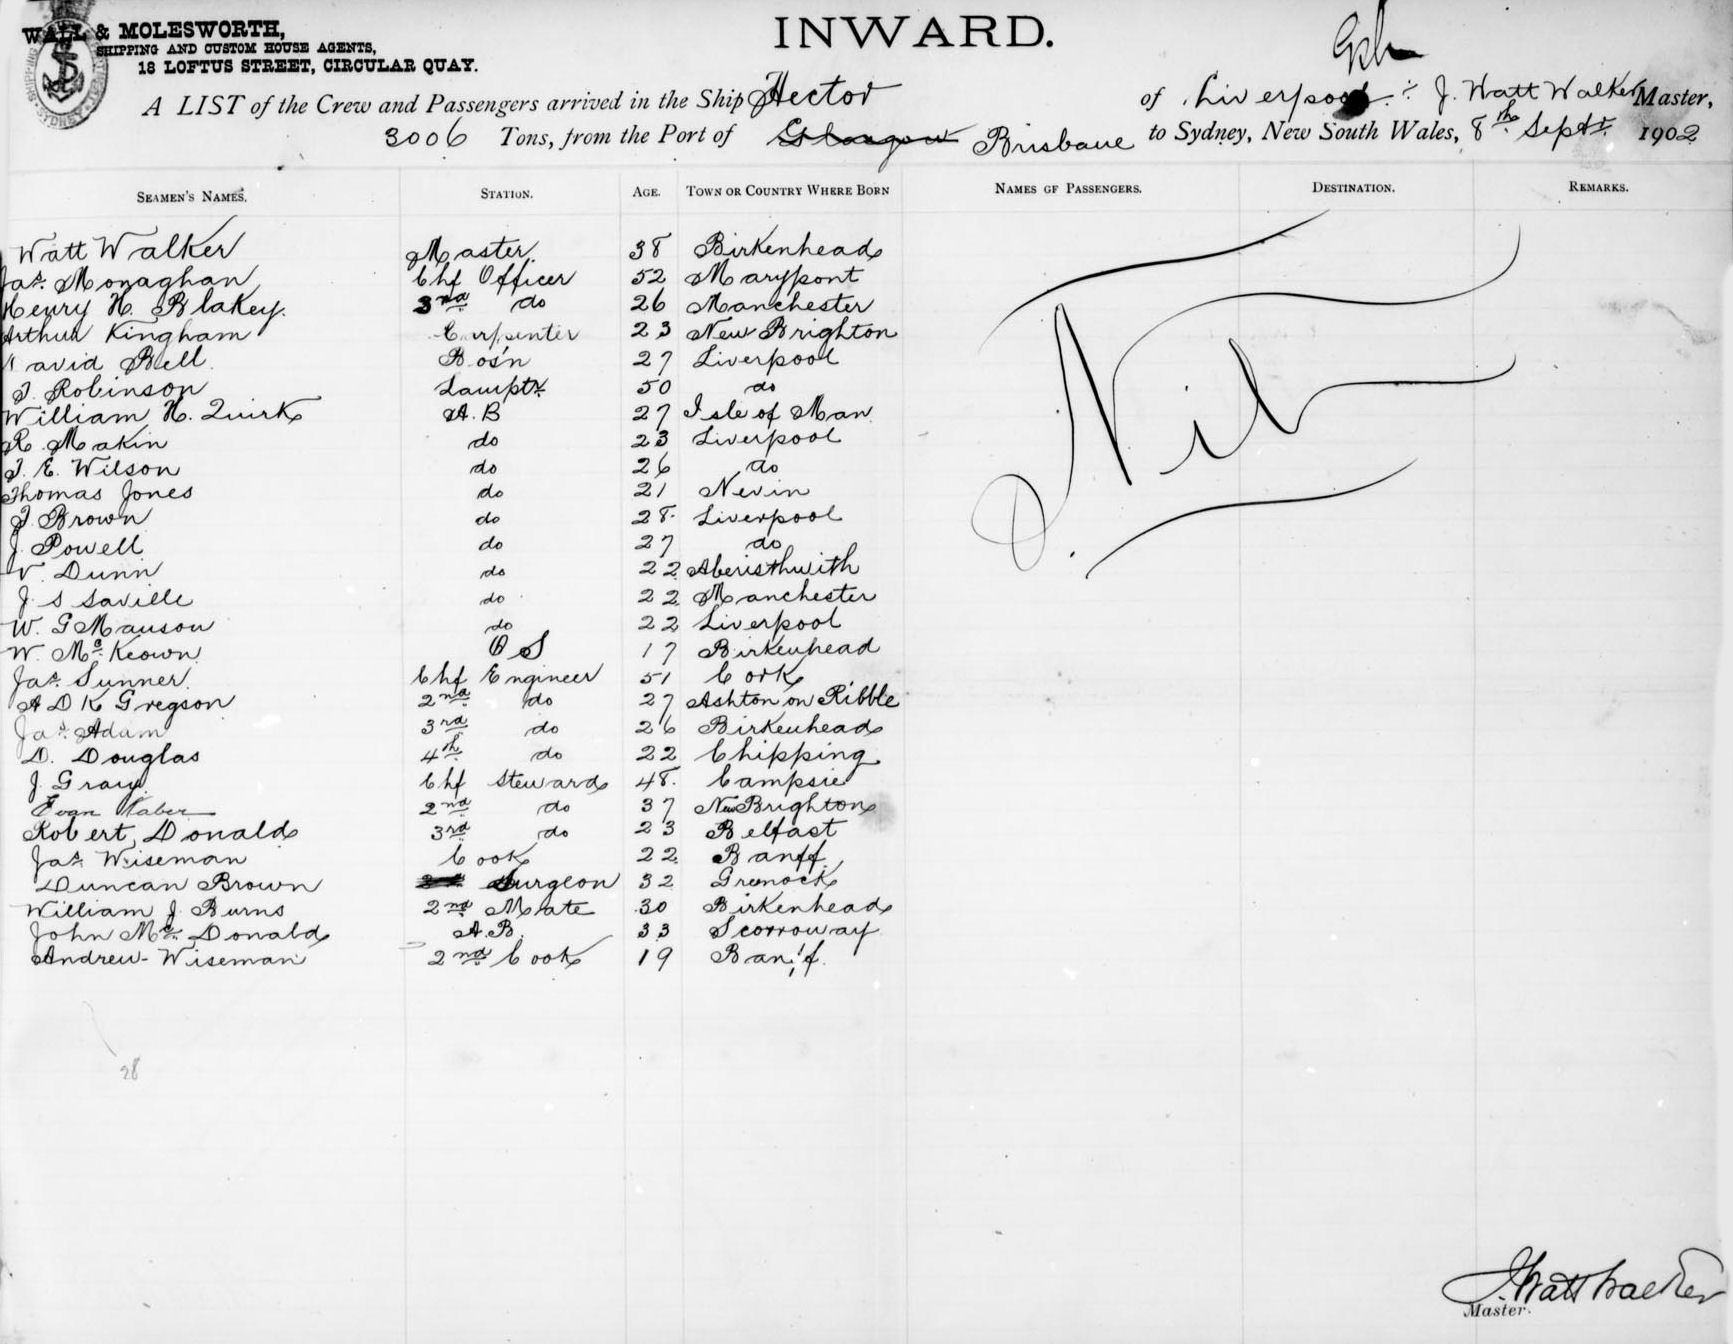 WALL & MOLESWORTH,
SHIPPING AND CUSTOM HOUSE AGENTS,
18 LOFTUS STREET, CIRCULAR QUAY.
INWARD.
A LIST of the Crew and Passengers arrived in the Ship Hector of Liverpool J. Watt Walker Master,
3006 Tons, from the Port of Glasgow Brisbane to Sydney, New South Wales, 8th Sept 1902
SEAMEN'S NAMES. STATION. AGE. TOWN OR COUNTRY WHERE BORN NAMES OF PASSENGERS. DESTINATION. REMARKS.
Watt Walker Master. 38 Birkenhead
Jas. Monaghan Chf Officer 52 Marypont
Henry H. Blakey. 3rd do 26 Manchester
Arthur Kingham Carpenter 23 New Brighton
David Bell Bos'n 27 Liverpool
J. Robinson Lamptr. 50 do
William H. Quirk A.B 27 Isle of Man
R. Makin do 23 Liverpool
J. E. Wilson do 26 do
Thomas Jones do 21 Nevin
J. Brown do 28 Liverpool
J. Powell do 27 do
V. Dunn do 22 Aberisthwith
J. S Saville do 22 Manchester
W. G Manson do 22 Liverpool
W. McKeown O S 17 Birkenhead
Jas. Sunner Chf Engineer 51 Cork
A D K Gregson 2nd do 27 Ashton on Ribble
Jas. Adam 3rd do 26 Birkenhead
D. Douglas 4th do 22 Chipping
J. Gray Chf Steward 48 Campsie
Evan 2nd do 37 New Brighton
Robert Donald 3rd do 23 Belfast
Jas. Wiseman Cook 22 Banff
Duncan Brown Surgeon 32 Grenock
William J. Burns 2nd Mate 30 Birkenhead
John McDonald A.B. 33 Scorroway
Andrew Wiseman 2nd Cook 19 Banff.
Nil
28
J. Watt Walker
Master.